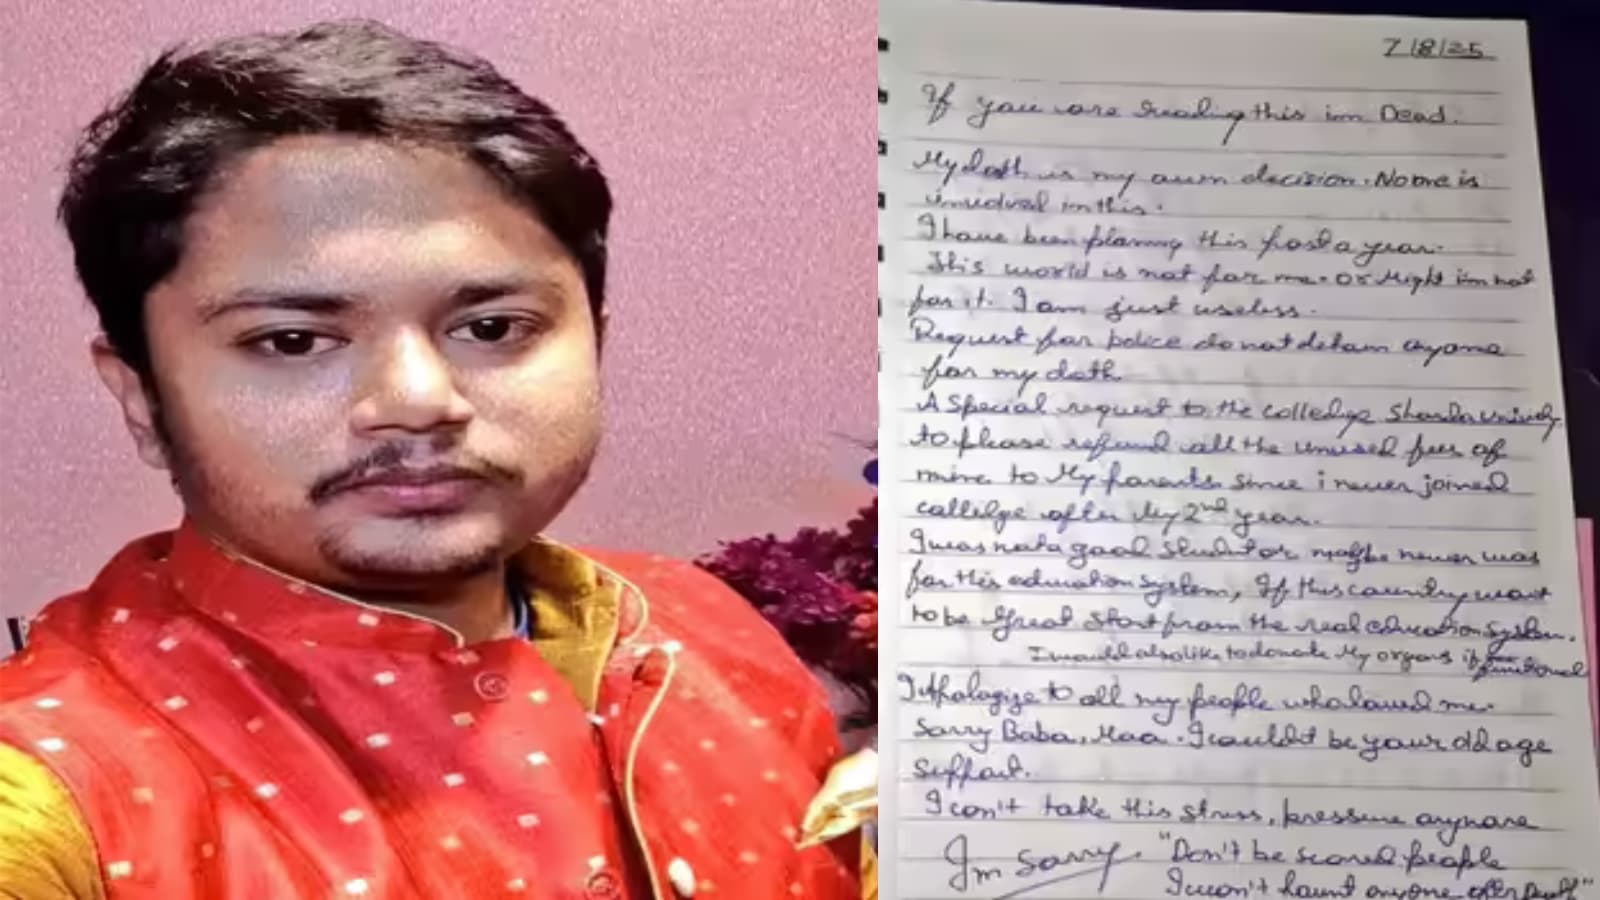 7/8/25
If you are reading this im Dead.
My dath is my own decision. No one is
involved in this.
I have been planing this past a year.
This world is not for me. Or Might im not
for it. I am just useless.
Request for police do not detain anyone
for my dath
A Special request to the colledge Sharda
to please refund all the unused fees of
mine to My parents since i never joined
colledge after My 2nd year.
I was not a good student or maybe never was
for this education system, If this country want
to be Great start from the real education system.
I would also like to donate My organs if functional
I Apologize to all my people who loved me.
Sorry Baba, Maa. I couldt be your old age
support.
I can't take this stress, pressure anymore
Im Sorry. "Don't be scared people
I won't haunt anyone after Death"